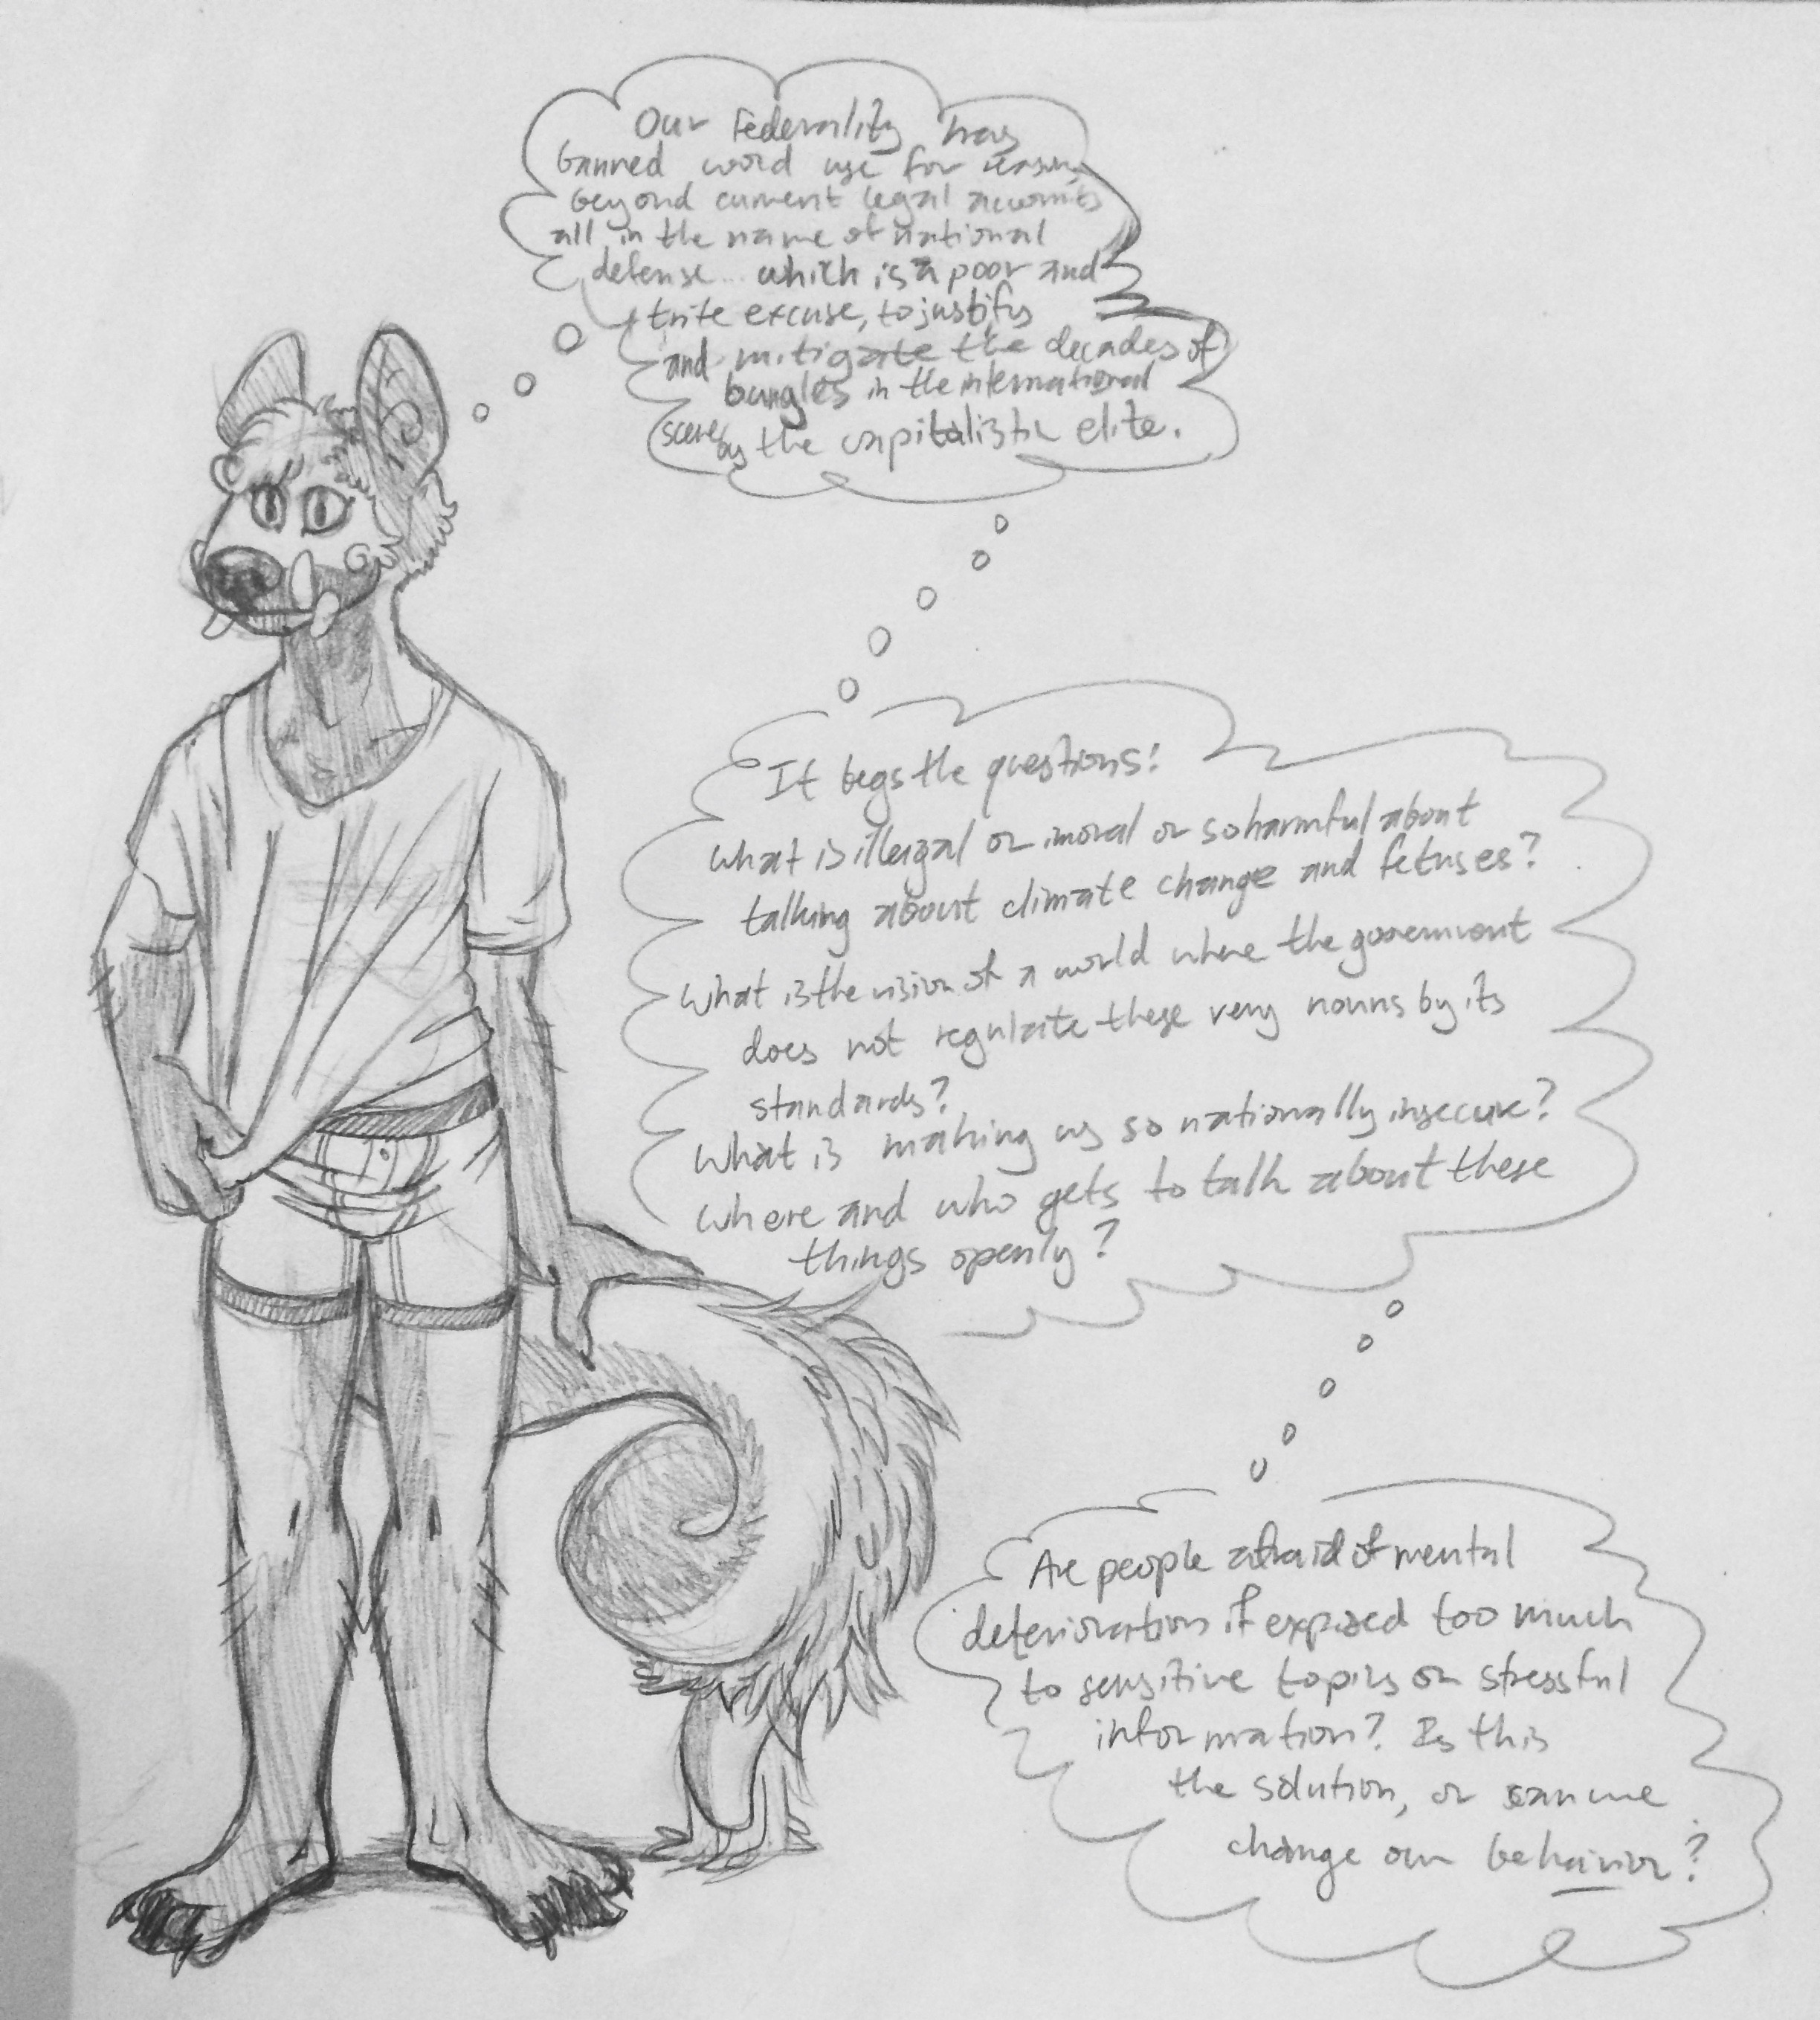 Our Federality has
banned word use for reasons
beyond current legal accounts
all in the name of national
defense... which is a poor and
trite excuse, to justify
and mitigate the decades of
bungles in the international
scene by the capitalistic elite.
It begs the questions:
What is illegal or imoral or so harmful about
talking about climate change and fetuses?
What is the vision of a world where the government
does not regulate these very nouns by its
standards?
What is making us so nationally insecure?
Where and who gets to talk about these
things openly?
Are people afraid of mental
deterioration if exposed too much
to sensitive topics or stressful
information? Is this
the solution, or can we
change our behavior?